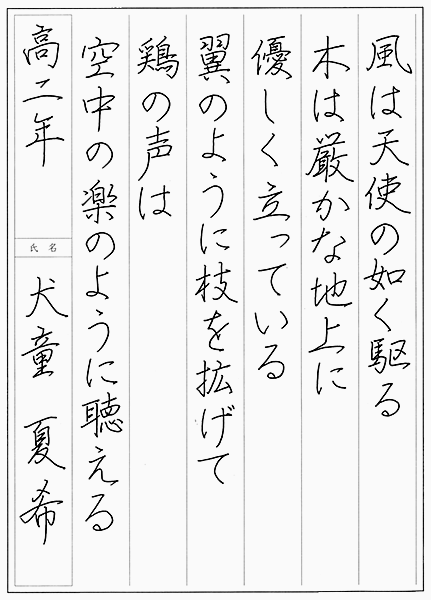 風は天使の如く駆る
木は厳かな地上に
優しく立っている
翼のように枝を拡げて
鶏の声は
空中の楽のように聴える
高二年
氏名
犬童 夏希